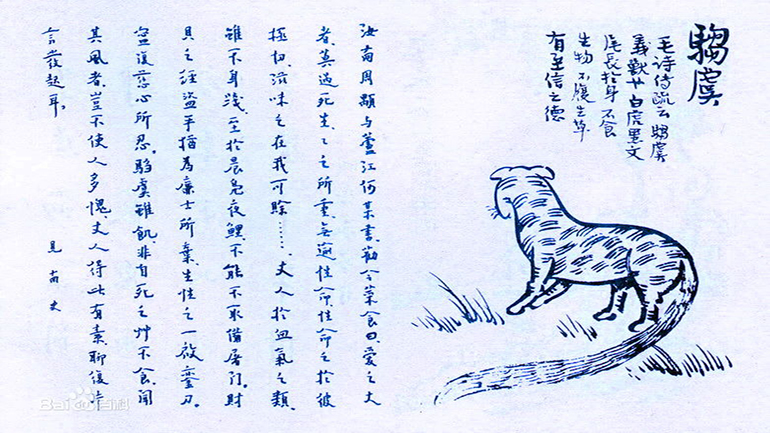 騶虞
毛诗传疏云 騶虞
義獸也 白虎黑文
尾長於身 不食
生物 不履生草
有至信之德
汝南周顒与蘆江何某書,勸令菜食曰:变之大
者,莫過死生;々之所重,無逾性命。性命之於彼
極切,滋味之在我可賒……。丈人於血氣之類,
雖不身淺,至於晨鳧夜鯉,不能不取備屠门。財
貝之經盜手,猶為廉士所棄;生性之一啟鸞刀,
寧復慈心所忍。騶虞雖飢,非自死之艸不食,聞
其風者,豈不使人多愧。丈人得此有素,聊復片
言發起耳。
見南史
Bai百科